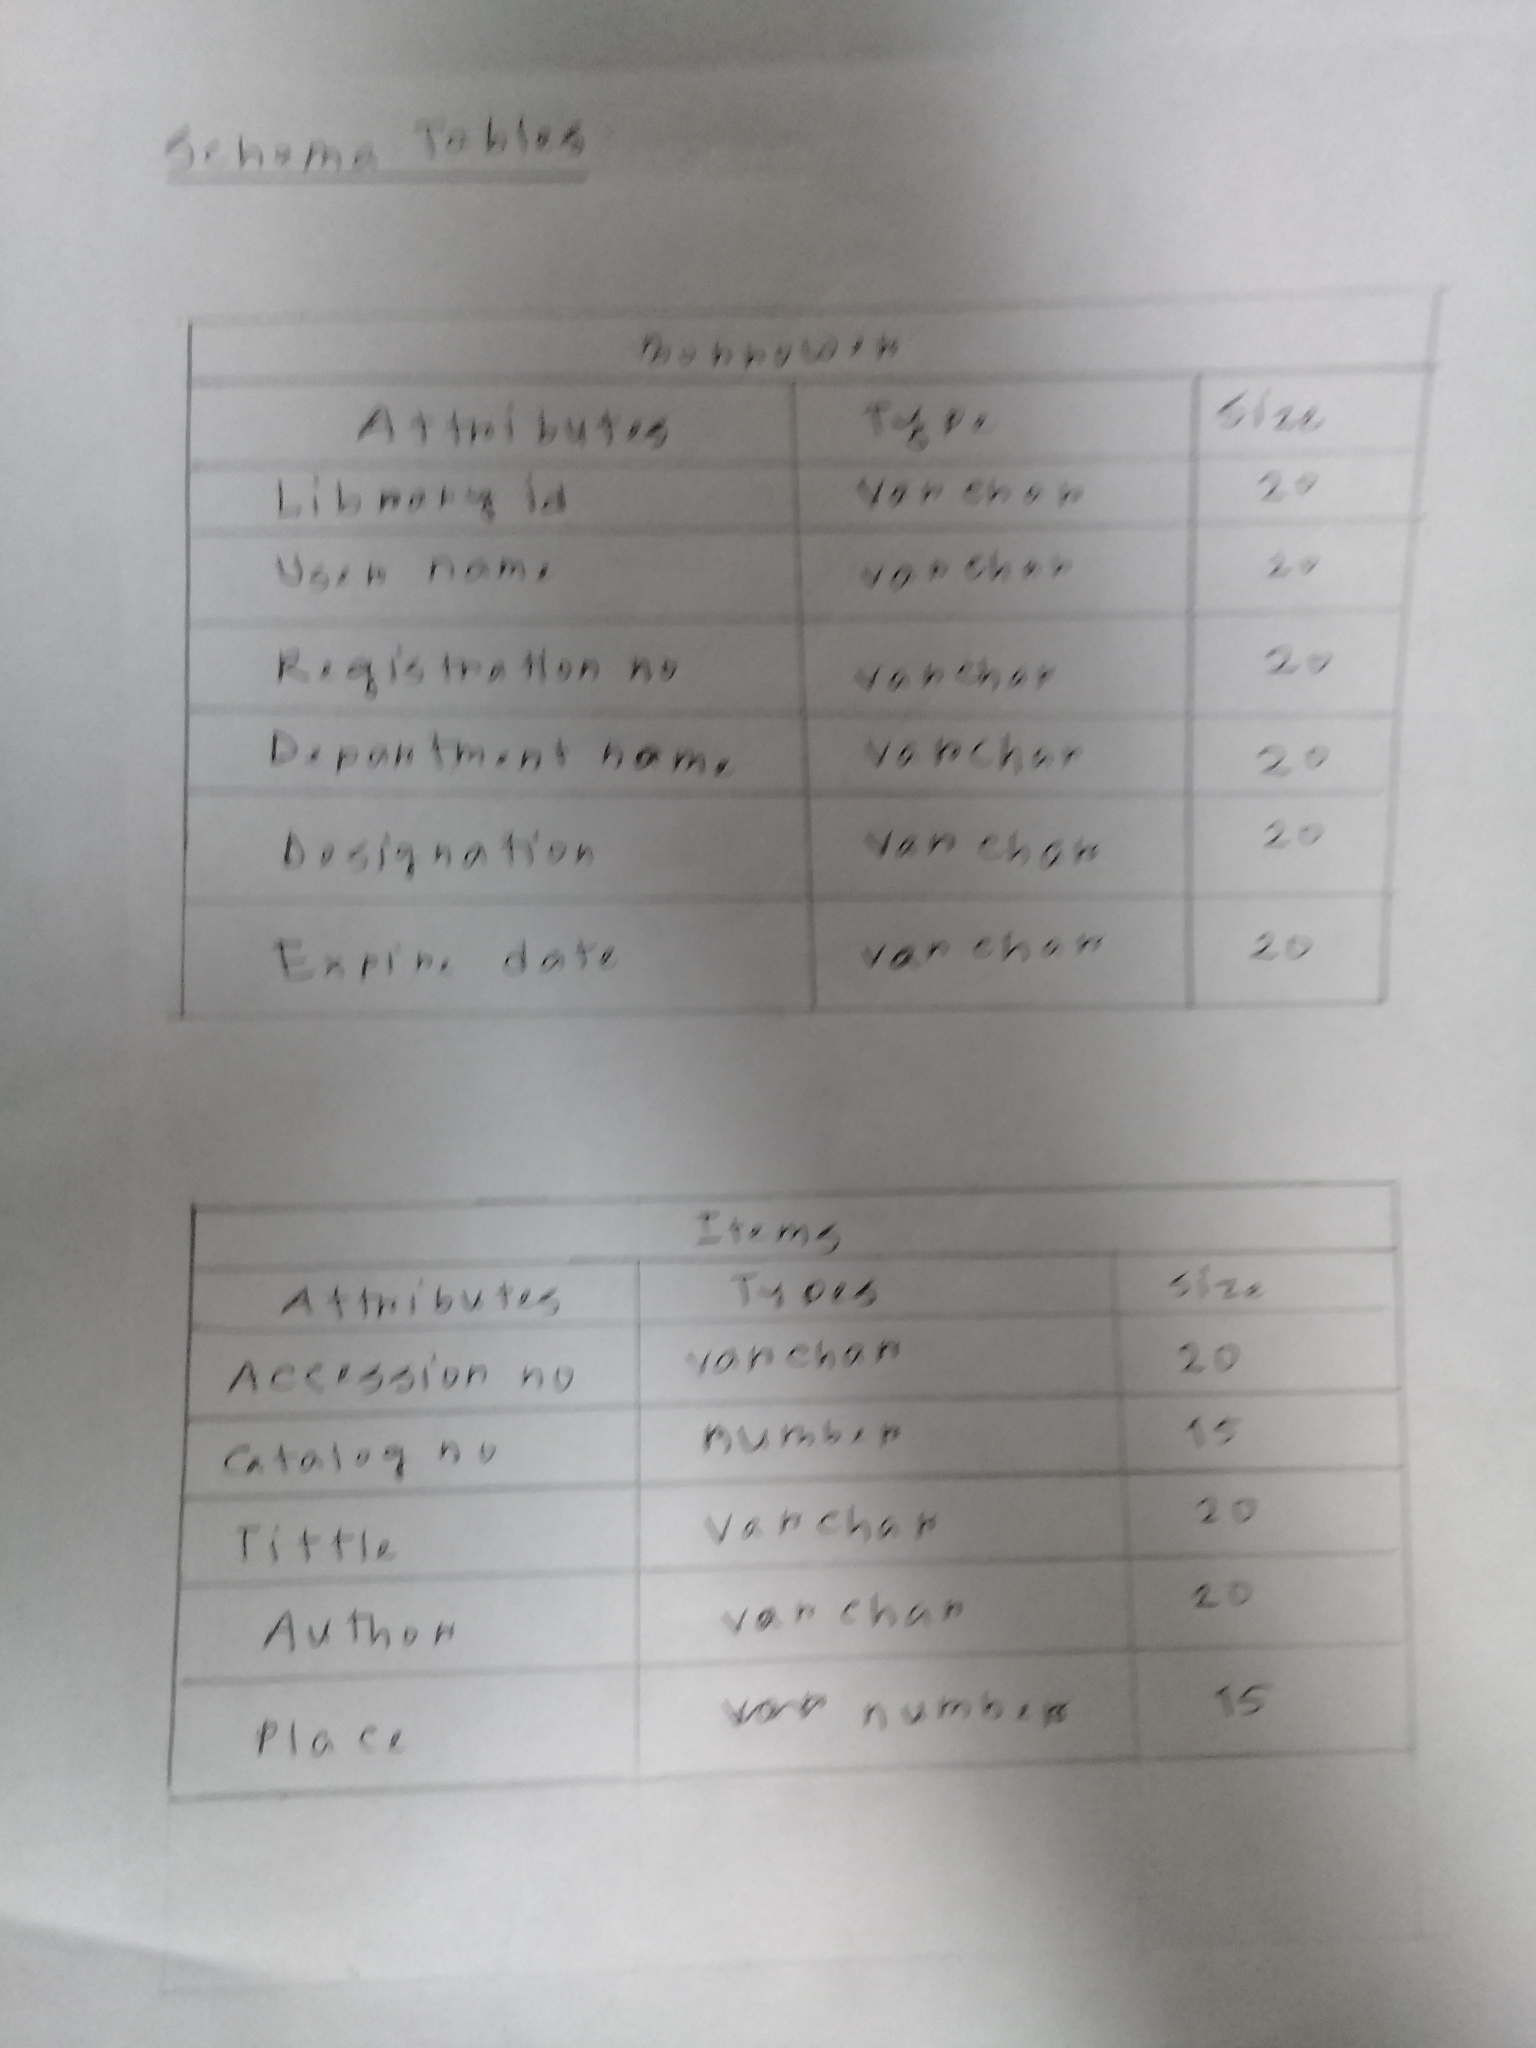 Schema Tables
Borrower
Attributes Type Size
Library id varchar 20
User name varchar 20
Registration no varchar 20
Department name varchar 20
Designation varchar 20
Expire date varchar 20
Items
Attributes Types Size
Accession no varchar 20
Catalog no number 15
Tittle varchar 20
Author varchar 20
Place number 15